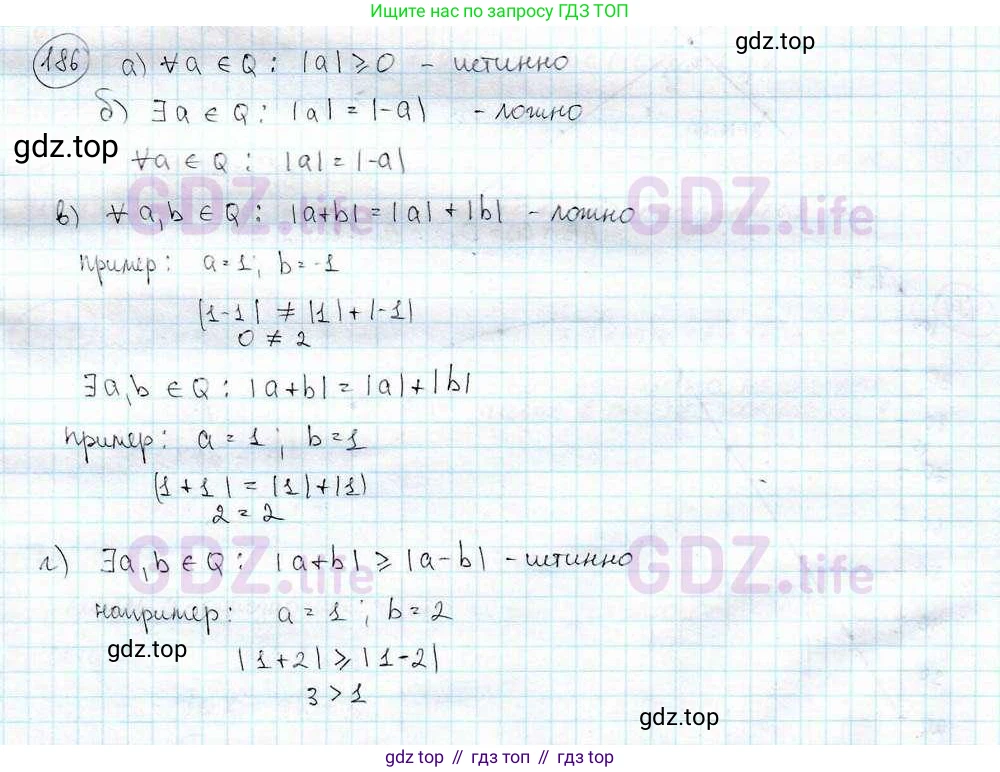 Ищите нас по запросу ГДЗ ТОП
gdz.top
186 а) ∀a ∈ Q : |a| ⩾ 0 - истинно
б) ∃a ∈ Q : |a| = |-a| - ложно
gdz.top
∀a ∈ Q : |a| = |-a|
GDZ.life GDZ.life
в) ∀ a,b ∈ Q : |a+b| = |a| + |b| - ложно
пример: a = 1; b = -1
|1-1| ≠ |1| + |-1|
0 ≠ 2
∃a,b ∈ Q : |a+b| = |a| + |b|
пример: a = 1 ; b = 1
|1+1| = |1|+|1|
2 = 2
GDZ.life GDZ.life
г) ∃a,b ∈ Q : |a+b| ⩾ |a-b| - истинно
например: a = 1 ; b = 2
gdz.top
|1+2| ⩾ |1-2|
3 > 1
gdz.top
gdz.top // гдз топ // гдз.top